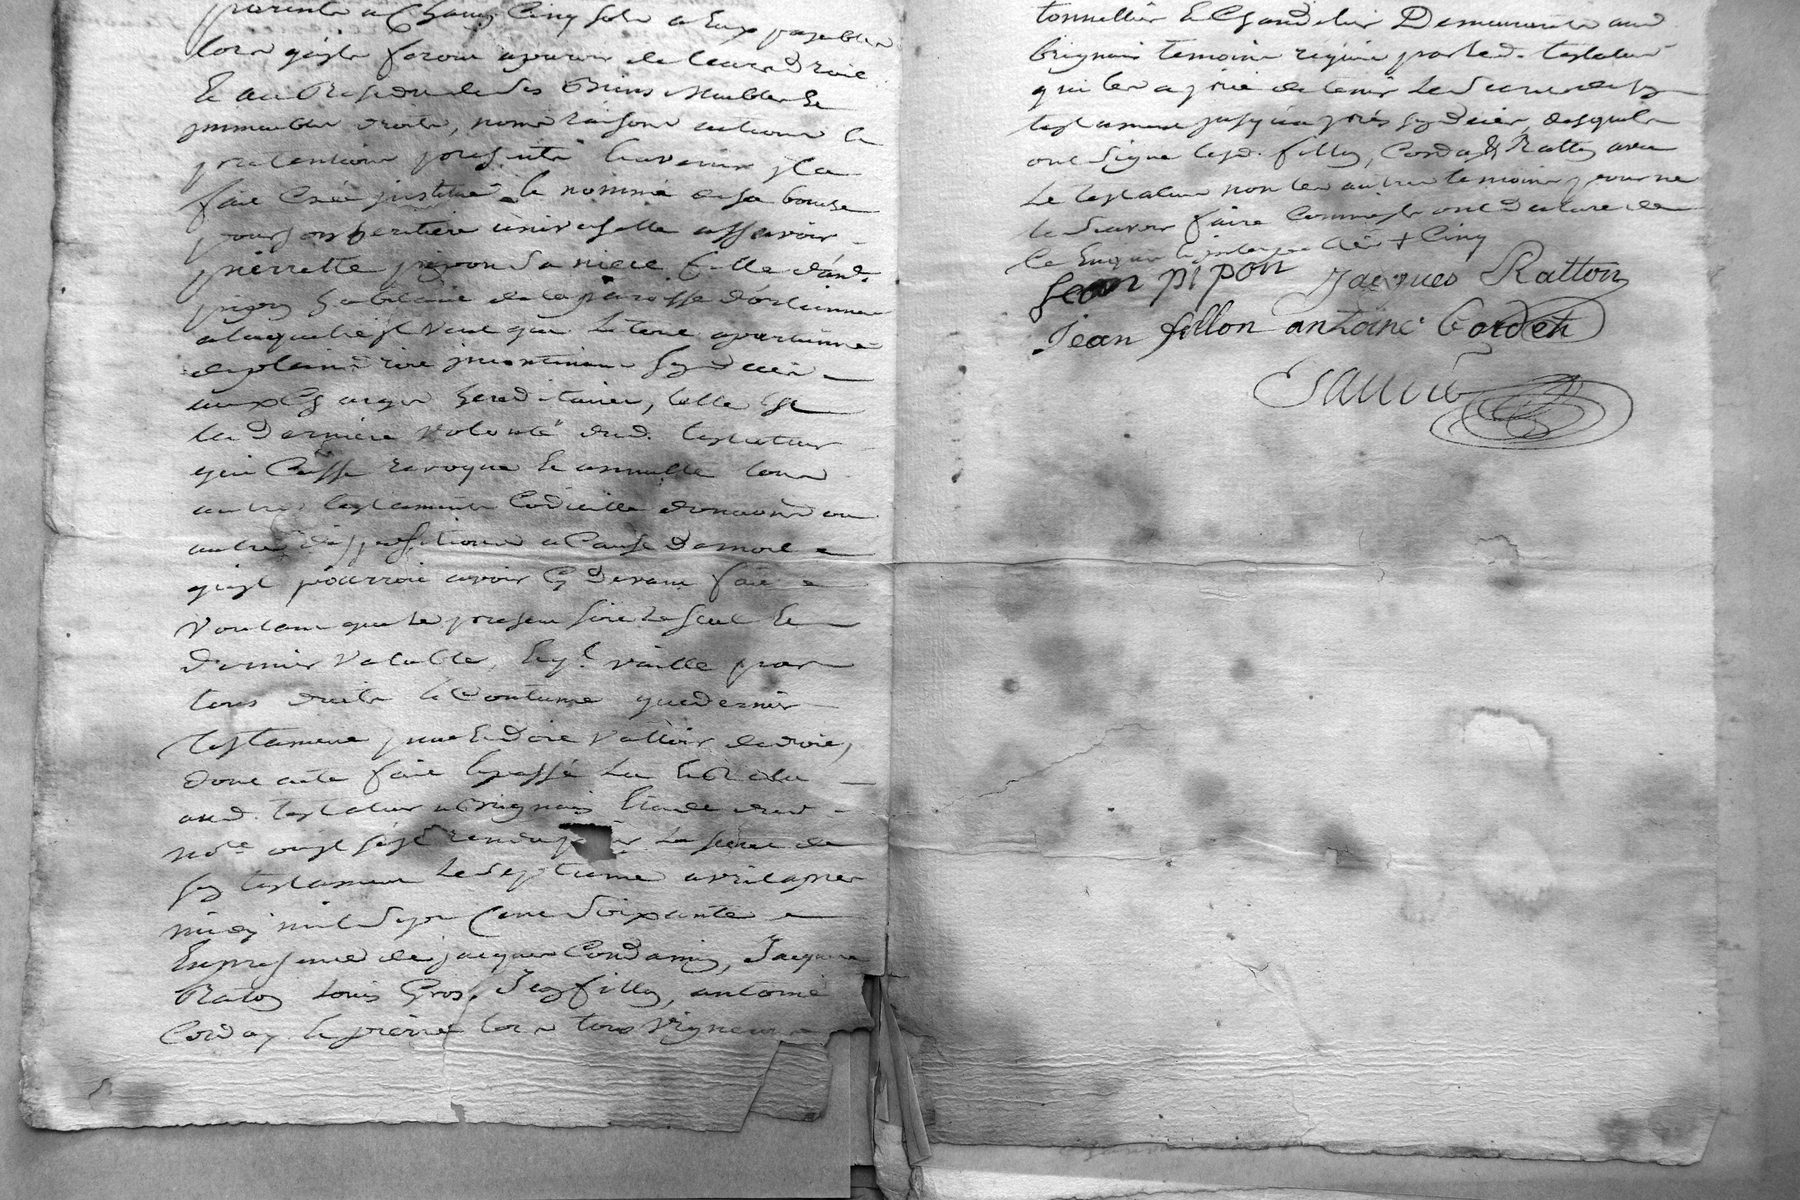 parents a Chacun Cinq sols a Eux payables
lors quils feront aparoir de leurs droit
Et au Residu de ses Biens Meubles Et
immeubles droits, noms raisons actions Et
pretentions presents Et avenir Il a
fait Créé institué Et nommé de sa bouche
pour son heritiere universelle assavoir
pierrette pipon sa niece fille d'and.
pipon habitant de la paroisse d'orlienas
a laquelle il veut que Le tout apartienne
de plain droit incontinant son deces
aux Charges hereditaires, telle Est
la Derniere Volonté dud. testateur
qui Casse revoque Et annulle tous
autres testaments Codicille donnations ou
autres dispositions a Cause de mort
quil pourroit avoir Cy Devant fait
Voulant que Le present soit Le seul Et
Dernier Valable, Et qu'il vaille par
tous droits Et Coutume que dernier
testament peut Et Doit Valloir de droit,
Dont acte fait Et passé Lu Et Relu
aud. testateur a Brignais Etude dud
no.re ou il s'est rendu pour La facture de
son testament Le septieme avril apres
midy mil sept Cent soixante
En presence de jacques Condamin, Jacques
Raton Louis Gros, Jean fillon, antoine
Corday Et pierre tous vignerons
tonnellier Et Chandelier Demeurants aud
brignais temoins requis par led. testateur
qui les a prié de tenir Le secret de son
testament jusqu'après son deces, desquels
ont signé lesd. fillon, Corday & Ratton avec
Le testateur non les autres temoins pour ne
le scavoir faire Comme ils ont declaré de
Ce Enquis Cinq
Jean pipon Jacques Ratton
Jean fillon antoine Cordet